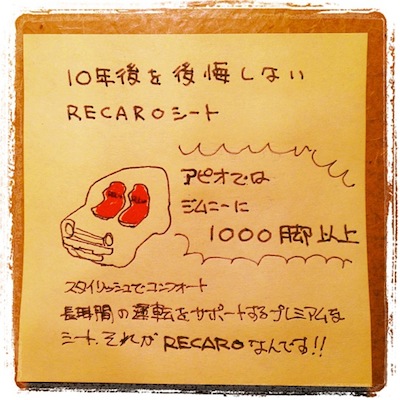 10年後を後悔しない
RECAROシート
アピオでは
ジムニーに
1000脚以上
スタイリッシュでコンフォート
長時間の運転をサポートするプレミアムな
シート.それがRECAROなんです!!